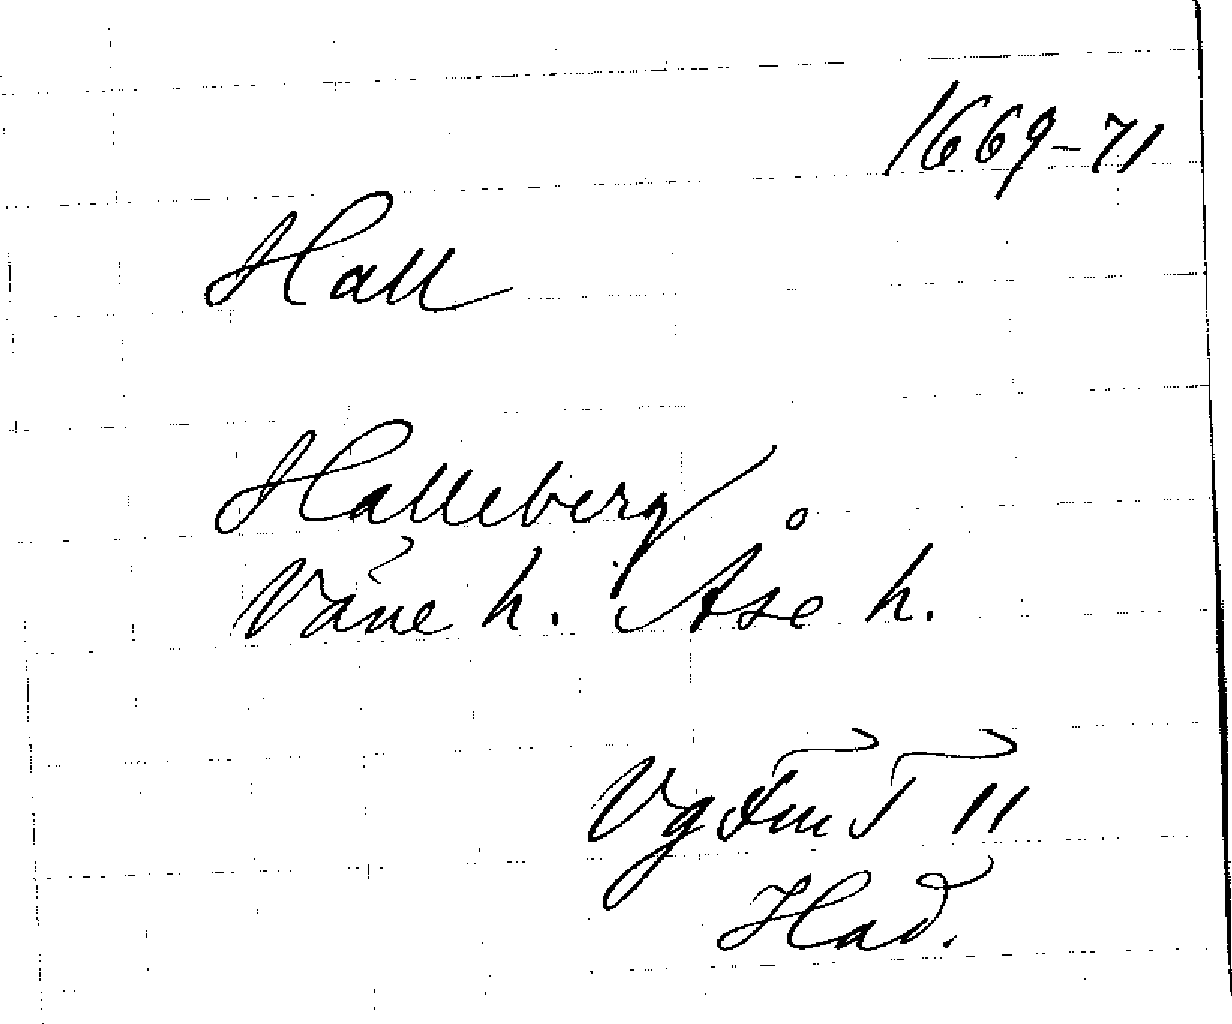 1669-71
Hall
Halleberg
Väne h. Åse h.
Vg Fm T 11
Had.